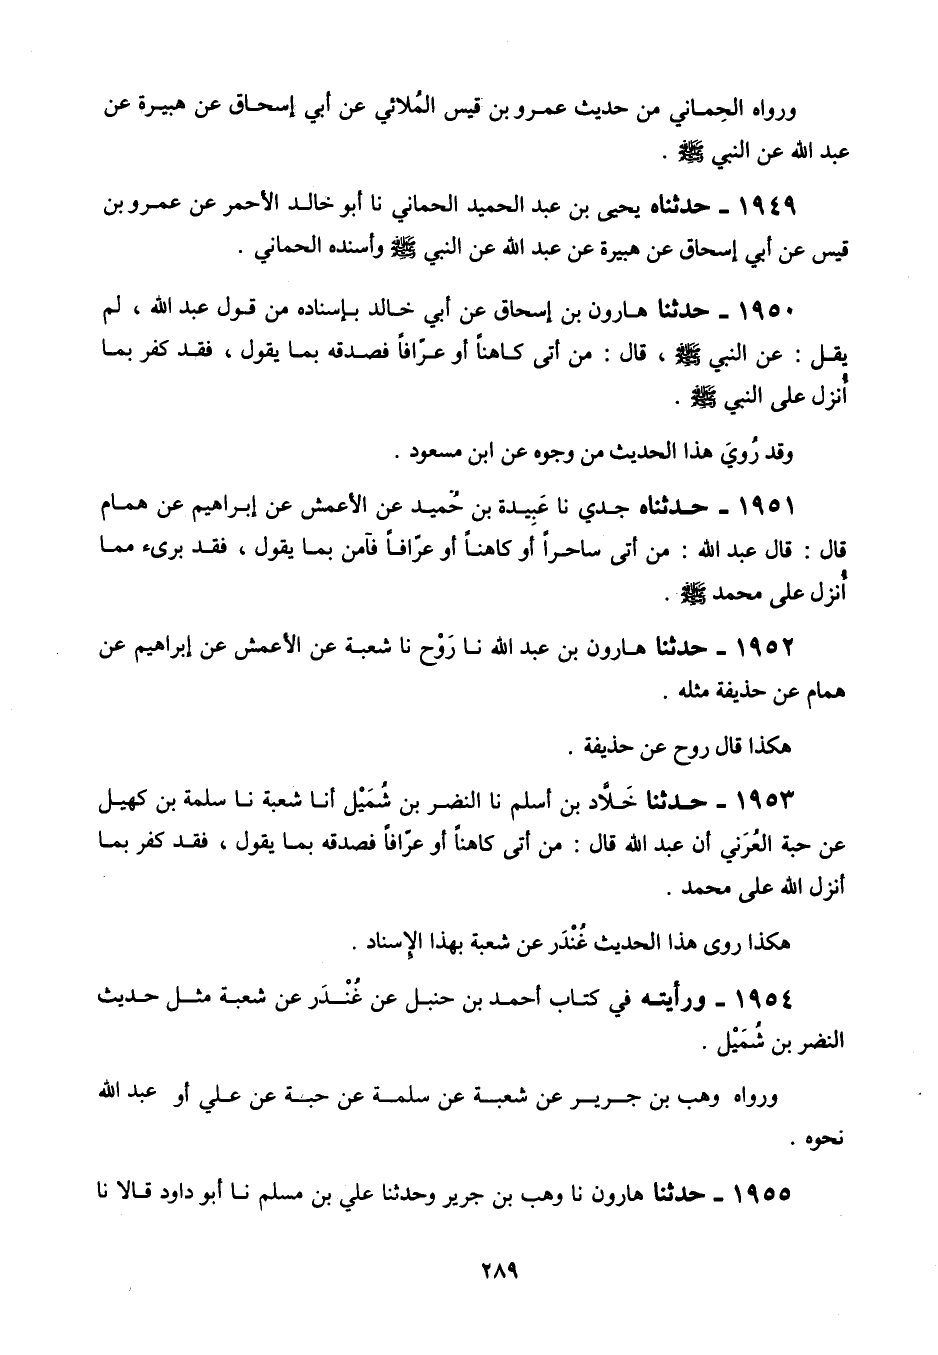 ورواه الحِماني من حديث عمرو بن قيس المُلائي عن أبي إسحاق عن هبيرة عن
عبد الله عن النبي ﷺ .
١٩٤٩ ـ حدثناه يحيى بن عبد الحميد الحماني نا أبو خالد الأحمر عن عمرو بن
قيس عن أبي إسحاق عن هبيرة عن عبد الله عن النبي ﷺ وأسنده الحماني .
١٩٥٠ ـ حدثنا هارون بن إسحاق عن أبي خالد بإسناده من قول عبد الله ، لم
يقل : عن النبي ﷺ ، قال : من أتى كاهناً أو عرّافاً فصدقه بما يقول ، فقد كفر بما
أُنزل على النبي ﷺ .
وقد رُويَ هذا الحديث من وجوه عن ابن مسعود .
١٩٥١ ـ حدثناه جدي نا عَبِيدة بن حُميد عن الأعمش عن إبراهيم عن همام
قال : قال عبد الله : من أتى ساحراً أو كاهناً أو عرّافاً فآمن بما يقول ، فقد برىء مما
أُنزل على محمد ﷺ .
١٩٥٢ ـ حدثنا هارون بن عبد الله نا رَوْح نا شعبة عن الأعمش عن إبراهيم عن
همام عن حذيفة مثله .
هكذا قال روح عن حذيفة .
١٩٥٣ ـ حدثنا خَلَّاد بن أسلم نا النضر بن شُمَيْل أنا شعبة نا سلمة بن كهيل
عن حبة العُرَني أن عبد الله قال : من أتى كاهناً أو عرّافاً فصدقه بما يقول ، فقد كفر بما
أنزل الله على محمد .
هكذا روى هذا الحديث غُنْدَر عن شعبة بهذا الإِسناد .
١٩٥٤ ـ ورأيته في كتاب أحمد بن حنبل عن غُنْدَر عن شعبة مثل حديث
النضر بن شُمَيْل .
ورواه وهب بن جرير عن شعبة عن سلمة عن حبة عن علي أو عبد الله
نحوه .
١٩٥٥ ـ حدثنا هارون نا وهب بن جرير وحدثنا علي بن مسلم نا أبو داود قالا نا
٢٨٩